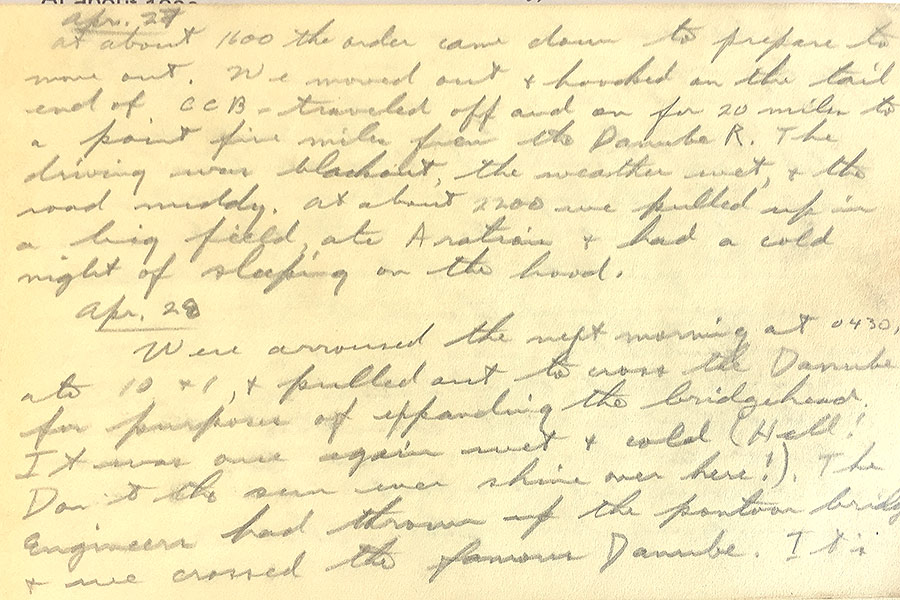 Apr. 27
At about 1600 the order came down to prepare to
move out. We moved out & hooked on the tail
end of CCB - traveled off and on for 20 miles to
a point five miles from the Danube R. The
driving was blackout, the weather wet, & the
road muddy. At about 2200 we pulled up in
a big field, ate A ration & had a cold
night of sleeping on the hood.
Apr. 28
Were arroused the next morning at 0430,
ate 10 & 1, & pulled out to cross the Danube
for purpose of expanding the bridgehead.
It was once again wet & cold (Hell!
Don't the sun ever shine over here!). The
Engineers had thrown up the pontoon bridg
& we crossed the famous Danube. It is